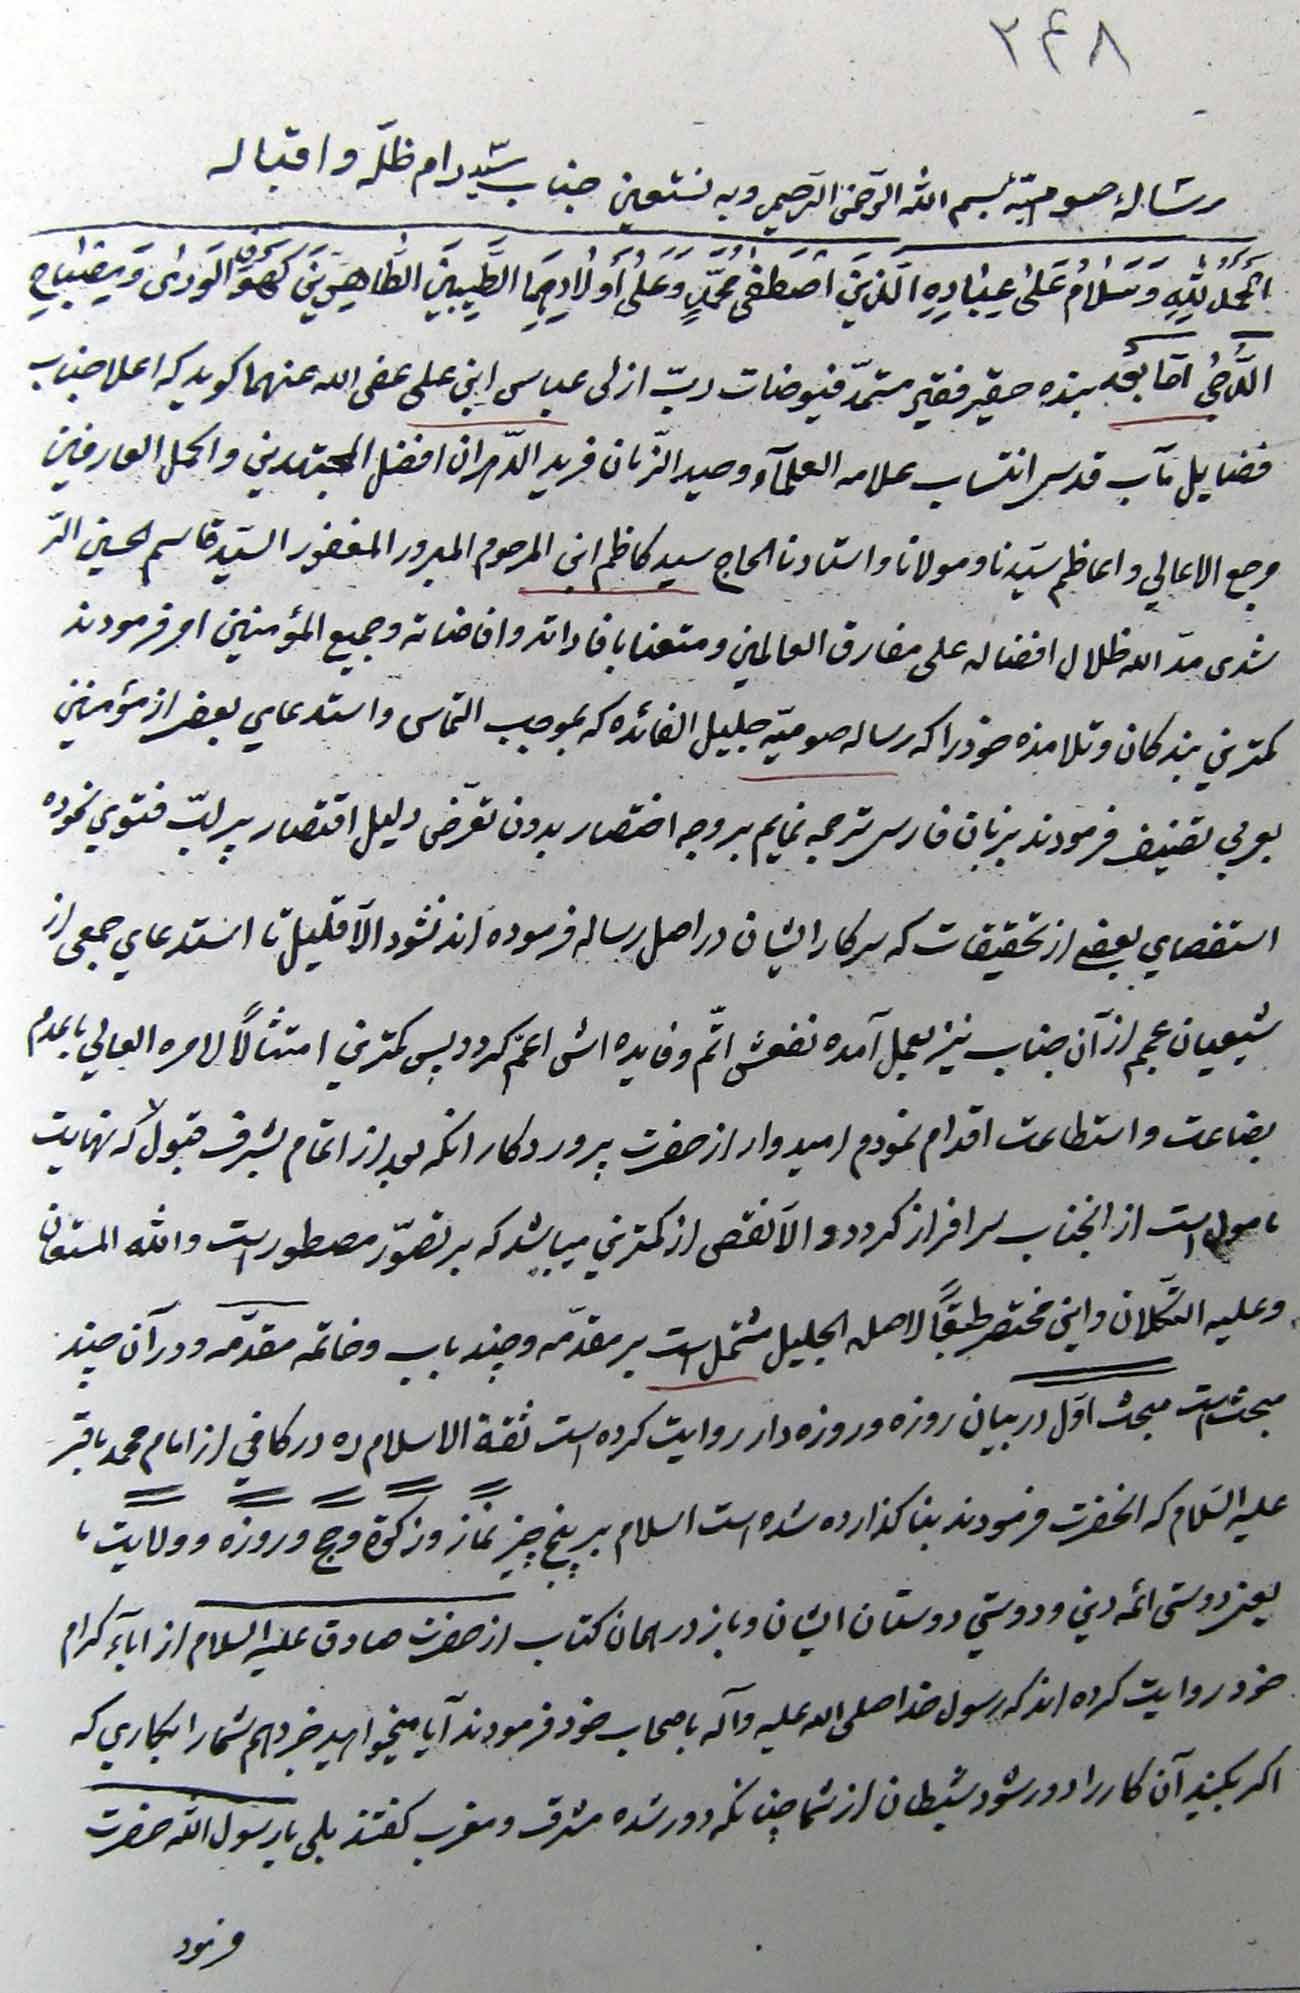 ۲۴۸
رسالهٔ صومیّه بسم الله الرّحمن الرّحیم وبه نستعین جناب سیّد دام ظلّه و اقباله
اَلْحَمْدُ لِلّٰهِ وَسَلَامٌ عَلٰی عِبَادِهِ الَّذِینَ اصْطَفٰی مُحَمَّدٍ وَعَلٰی أَوْلَادِهِ الطَّیِّبِینَ الطَّاهِرِینَ کَهْفِ الْوَرٰی وَمِصْبَاحِ
الدُّجٰی اَمّا بَعْد بنده حقیر فقیر مستمدّ فیوضات ربّ ازلی عباس ابن علی عفی الله عنهما کوید که اعلا جناب
فضایل مآب قدس انتساب علامه العلمآء وحید الزّمان فرید الدّهران افضل المجتهدین و اکمل العارفین
مرجع الاعالي و اعاظم سیّدنا و مولانا و استادنا الحاج سید کاظم ابن المرحوم المبرور المغفور السیّد قاسم الحسینی الرّ
شتی مدّ الله ظلال افضاله علی مفارق العالمین و متعنا بافاداته و افاضاته و جمیع المؤمنین امر فرمودند
کمترین بندکان و تلامذه خود را که رساله صومیّه جلیل الفائده که بموجب التماس و استدعاي بعض از مؤمنین
بعربي تصنیف فرمودند بزبان فارسی ترجمه نمایم بر وجه اختصار بدون تعرّض دلیل اقتصار بر لبّ فتوي نموده
استقصاي بعضي از تحقیقات که سرکار ایشان در اصل رساله فرموده اند نشود الّا قلیل تا استدعاي جمعی از
شیعیان عجم از آن جناب نیز بعمل آمده نفعش اتمّ و فایده اش اعمّ کردد پس کمترین امتثالاً لامره العالي با عدم
بضاعت و استطاعت اقدام نمودم امیدوار از حضرت پروردکار انکه بعد از اتمام بشرف قبول که نهایت
مامول است از انجناب سرافراز کردد و الّا نقص از کمترین میباشد که بر تصوّر مصطور است والله المستعان
وعلیه التکلان و این مختصر طبقاً لاصله الجلیل مشتمل است بر مقدّمه و چند باب و خاتمه مقدّمه و در آن چند
مبحث است مبحث اوّل در بیان روزه و روزه دار روایت کرده است ثقة الاسلام ره در کافي از امام محمد باقر
علیه السّلام که انحضرت فرمودند بنا کذارده شده است اسلام بر پنج چیز نماز و زکوة و حج و روزه و ولایت ما
یعنی دوستی ائمه دین و دوستي دوستان ایشان و باز در همان کتاب از حضرت صادق علیه السلام از اباء کرام
خود روایت کرده اند که رسول خدا صلی الله علیه و آله باصحاب خود فرمودند آیا میخواهید خبر دهم شما را بکاري که
اکر بکنید آن کار را دور شود شیطان از شما چنانکه دور شده مشرق و مغرب کفتند بلی یا رسول الله حضرت
فرمود